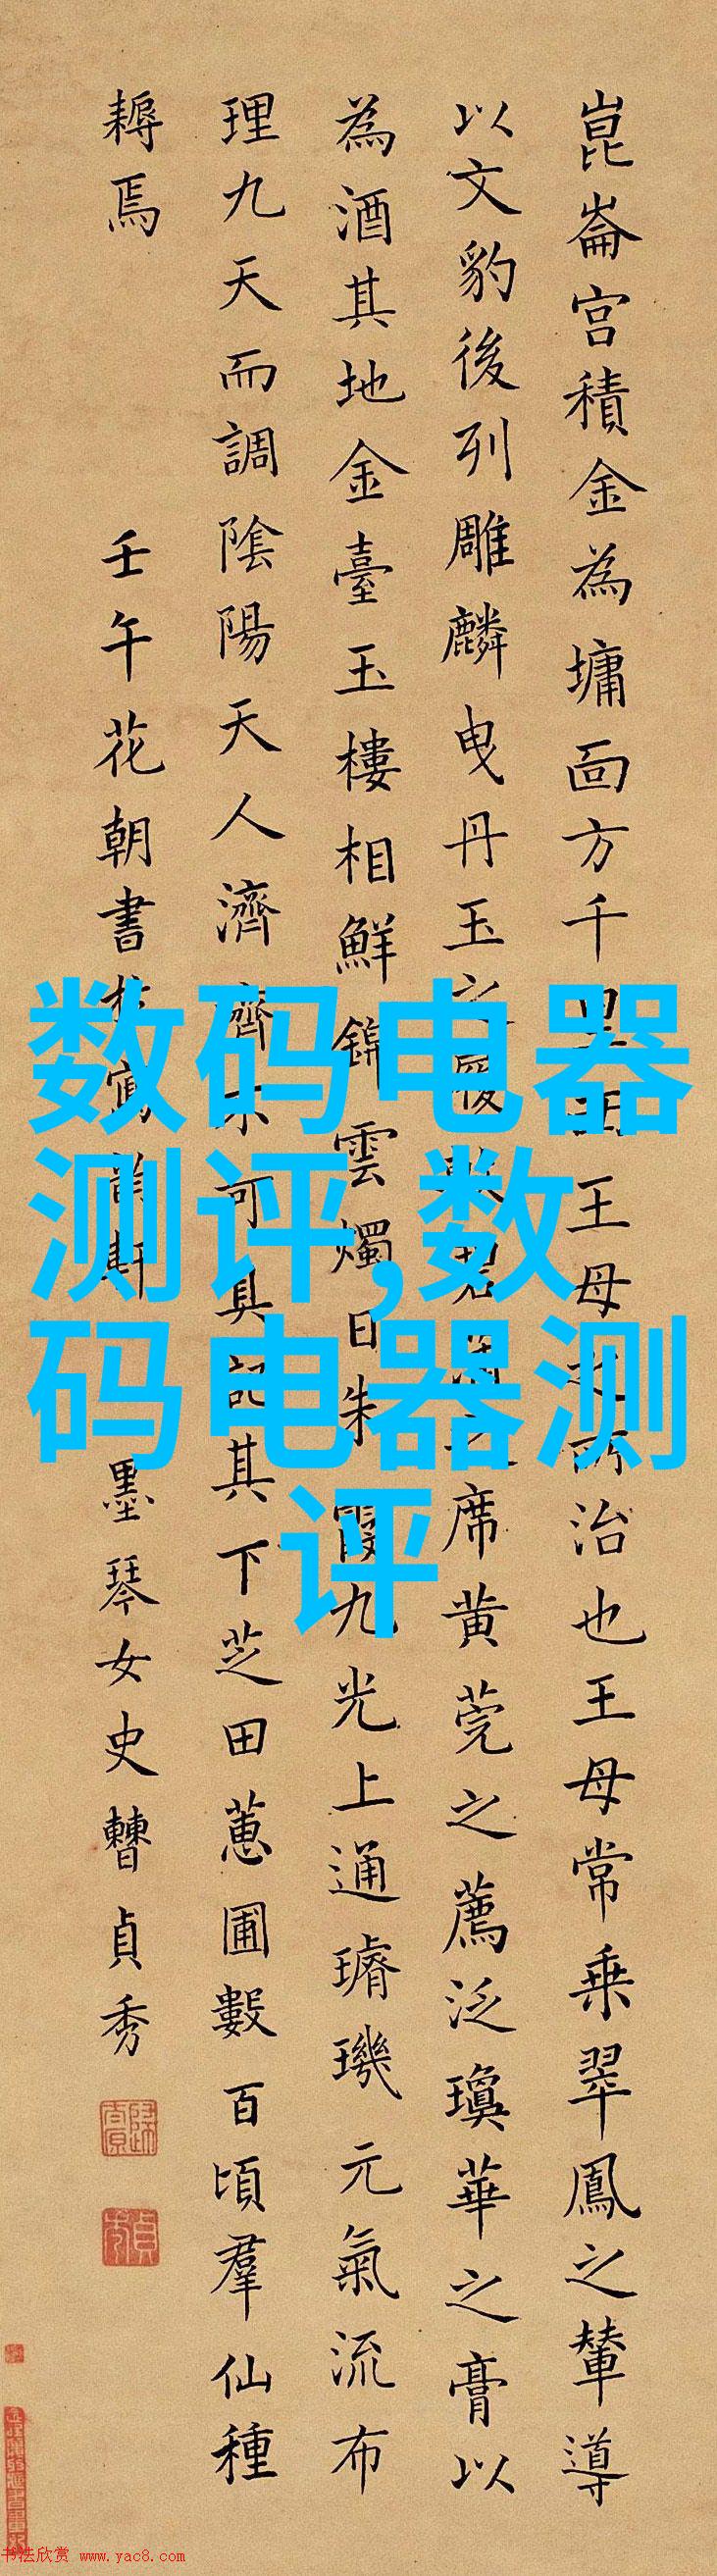 崑崙宮積金為墉面方千里西王母之所治也王母常乗翠鳳之輦導
以文豹後列雕麟曳丹玉之履敷碧蒲之席黄莞之薦泛瓊華之膏以
為酒其地金臺玉樓相鮮錦雲燭日朱霞九光上通璿璣元氣流布
理九天而調陰陽天人濟濟不可具記其下芝田蕙圃數百頃羣仙種
耨焉 壬午花朝書於寫韻軒 墨琴女史曹貞秀
数码电器
测评,数
码电器测
评
书法欣赏 www.yac8.com